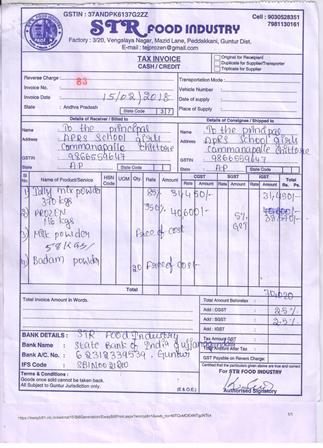 GSTIN : 37ANDPK6137G2ZZ
Cell : 9030528351
7981130161
STR FOOD INDUSTRY
Factory : 3/20, Vengalaya Nagar, Mazid Lane, Peddakkani, Guntur Dist.
E-mail : tejprozen@gmail.com
TAX INVOICE
CASH / CREDIT
Original for Receipient
Duplicate for Supplier/Transporter
Triplicate for Supplier
Reverse Charge :
83
Invoice No. :
Invoice Date : 15/02/2018
State : Andhra Pradesh State Code 37
Transportation Mode :
Vehicle Number :
Date of supply :
Place of Supply :
Details of Receiver / Billed to
Name To the principal
APRS School girls
Commanapallo
GSTIN 9866559647
State AP State Code
Details of Consignee / Shipped to
Name To the principal
APRS School girls
Commanapalle
GSTIN 9866559647
State AP State Code
Sl. No. Name of Product/Service HSN Code UOM Qty. Rate Amount CGST SGST IGST Total Rs. Ps.
Rate Amount Rate Amount Rate Amount
1) Idly mix powder 85/- 31,450/- 31,450/-
370 kgs
2) PROZEN 350/- 40600/-
116 kgs 5% GST
3) Milk powder Free of cost
58 KGS/-
4) Badam powder 20 Free of cost-
Total
Total Invoice Amount in Words.
Total Amount Before tax :
Add : CGST 2.5%
Add : SGST 2.5%
Add : IGST
Tax Amount GST
Total Amount After Tax :
GST Payable on Revers Charge
BANK DETAILS : STR Food Industry
Bank Name : State Bank of India
Bank A/C. No. : 62318339539, Guntur
IFS Code : SBIN0021810
Terms & Conditions :
Goods once sold cannot be taken back.
All Subject to Guntur Jurisdiction only.
(E & O.E)
Certified that the particulars given above are true and correct
For STR FOOD INDUSTRY
Authorised Signatory
1/1